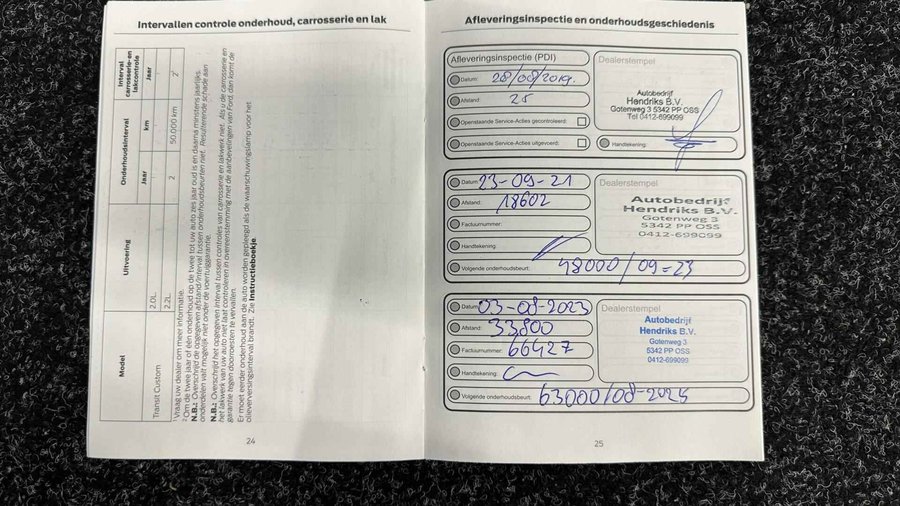 Intervallen controle onderhoud, carrosserie en lak
Model
Uitvoering
Onderhoudsinterval
Interval carrosserie-en lakcontrole
Jaar
km
Jaar
Transit Custom
2.0L.
2.2L.
2
50.000 km
2¹
¹ Vraag uw dealer om meer informatie.
² Om de twee jaar of één onderhoud op de twee tot uw auto zes jaar oud is en daarna minstens jaarlijks.
N.B.: Overschrijd de opgegeven afstand/interval tussen onderhoudsbeurten niet. Resulterende schade aan
onderdelen valt mogelijk niet onder de voertuiggarantie.
N.B.: Overschrijd het opgegeven interval tussen controles van carrosserie en lakwerk niet. Als u de carrosserie en
het lakwerk van uw auto niet laat controleren in overeenstemming met de aanbevelingen van Ford, dan komt de
garantie tegen doorroesten te vervallen.
Er moet eerder onderhoud aan de auto worden gepleegd als de waarschuwingslamp voor het
olieverversingsinterval brandt. Zie Instructieboekje.
24
Afleveringsinspectie en onderhoudsgeschiedenis
Afleveringsinspectie (PDI)
Datum: 28/08/2019.
Afstand: 25
Openstaande Service-Acties gecontroleerd:
Openstaande Service-Acties uitgevoerd:
Dealerstempel
Autobedrijf
Hendriks B.V.
Gotenweg 3 5342 PP OSS
Tel 0412-699099
Handtekening:
Datum: 23-09-21
Afstand: 18602
Factuurnummer:
Handtekening:
Volgende onderhoudsbeurt: 48000/09=23
Dealerstempel
Autobedrijf
Hendriks B.V.
Gotenweg 3
5342 PP OSS
0412-699099
Datum: 03-08-2023
Afstand: 33800
Factuurnummer: 66427
Handtekening:
Volgende onderhoudsbeurt: 63000/08-2025
Dealerstempel
Autobedrijf
Hendriks B.V.
Gotenweg 3
5342 PP OSS
0412-699099
25